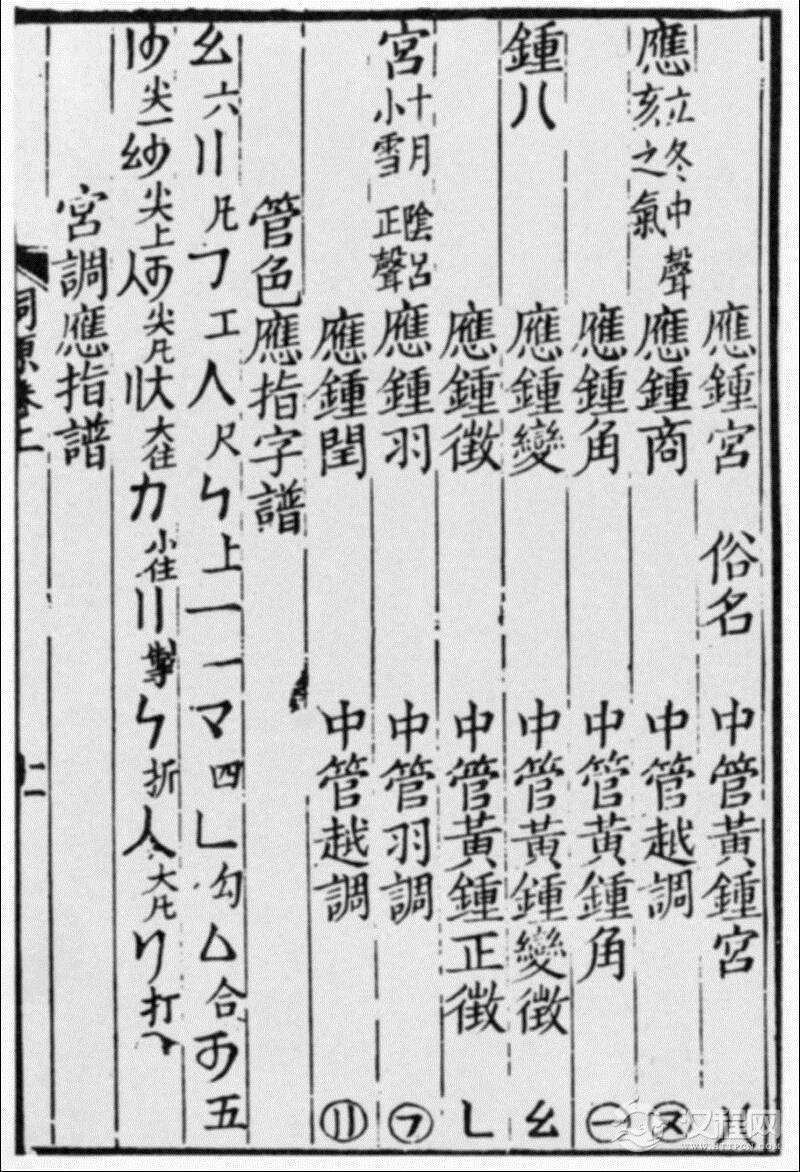 應鍾宮 俗名 中管黃鍾宮 〢
應 立冬中聲 亥之氣 應鍾商 中管越調 ㋦
應鍾角 中管黃鍾角 ㊀
鍾 〢 應鍾變 中管黃鍾變徵 幺
應鍾徵 中管黃鍾正徵 ㄴ
宮 十月陰呂 小雪正聲 應鍾羽 中管羽調 ㋐
應鍾閏 中管越調 ⑪
管色應指字譜
幺 六 〢 凡 フ 工 人 尺 ㄣ 上 一 一 マ 四 ㄴ 勾 合 五
尖一 尖上 尖凡 大住 力 小住 〢 掣 ㄣ 折 人 大凡 リ 打
宮調應指譜
詞源卷上
十一
汉程网
WWW.HTTPCN.COM